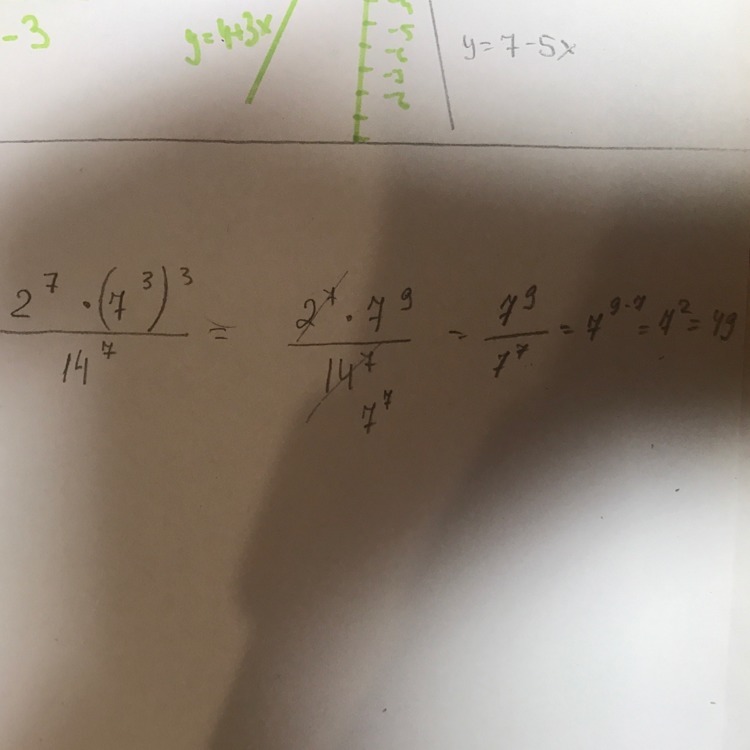 -3
y=4+3x
y=7-5x
2^7·(7^3)^3/14^7 = 2^7·7^9/14^7 = 7^9/7^7 = 7^9-7 = 7^2 = 49
7^7